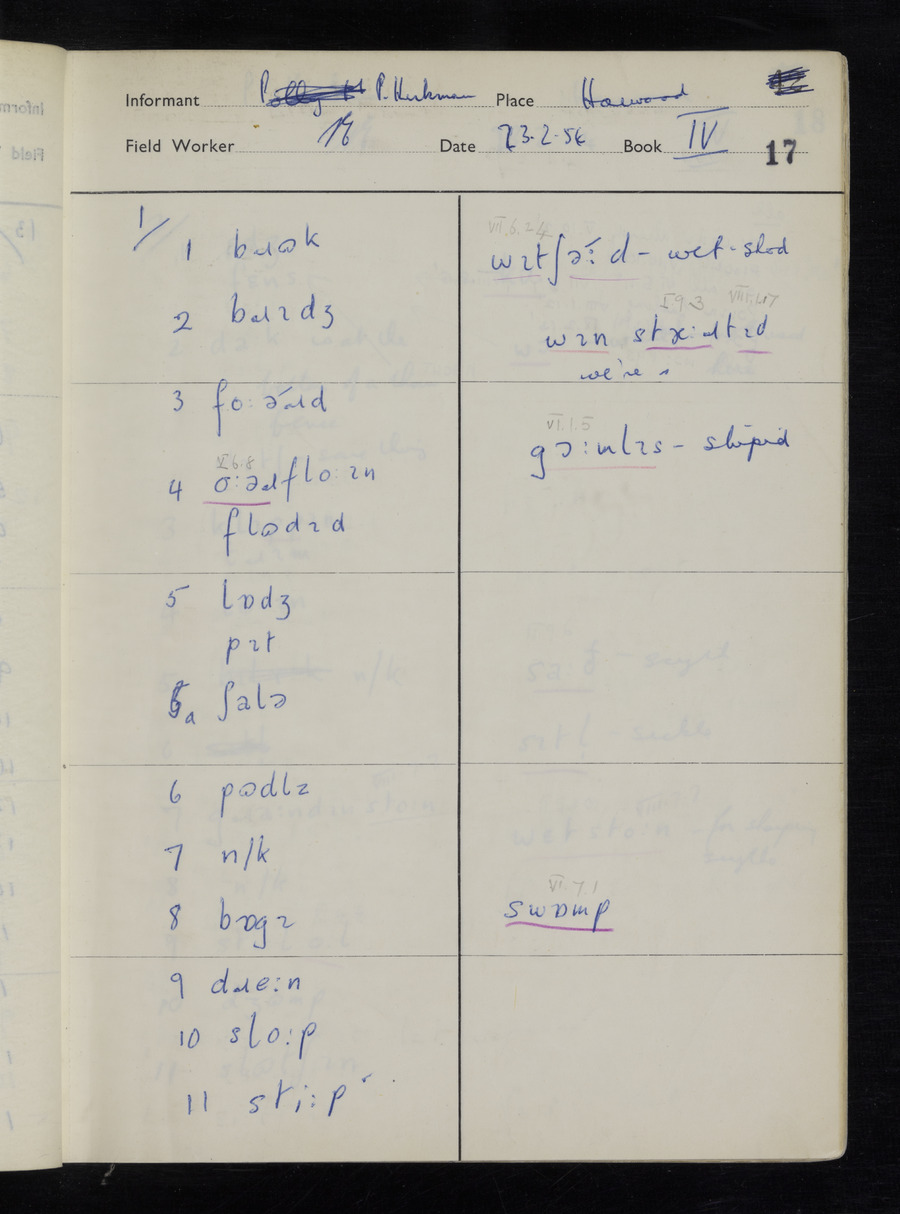 Informant P. Kirkman Place Harwood
Field Worker Date 23.2.54 Book IV 17
1/
1 bɹʊk
2 bɹɪdʒ
3 fo:əɹd
V.6.8
4 o:əɹflo:ɪn
flʊdɪd
5 lɒdʒ
pɪt
5a ʃalə
6 pʊdlɪ
7 n/k
8 bɒgɪ
9 dɹe:n
10 slo:p
11 sti:p
VII.6.24
wɪtʃɔ:d - wet-shod
I.9.3 VIII.1.17
wɪn
we're
VI.1.5
gɔ:mlɪs - stupid
VI.7.1
swɒmp